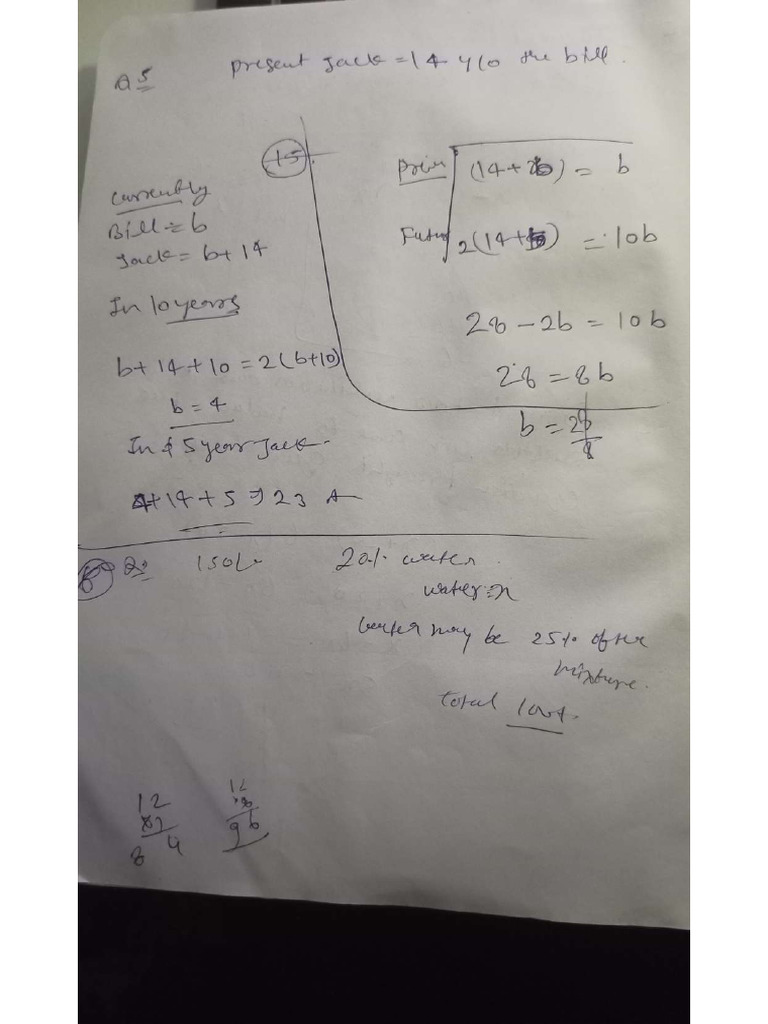 Q5 present Jack = 14 y/o the bill.
15
Currently
Bill = b
Jack = b+14
In 10 years
b+14+10 = 2(b+10)
b = 4
In 5 year Jack.
4+14+5 => 23 A
(14+ ) = b
2(14+ ) = 10b
28 - 2b = 10b
28 = 8b
b = 28/8
Q 150L 20% water.
water = x
water may be 25% of the
mixture.
total
12
84
12
96